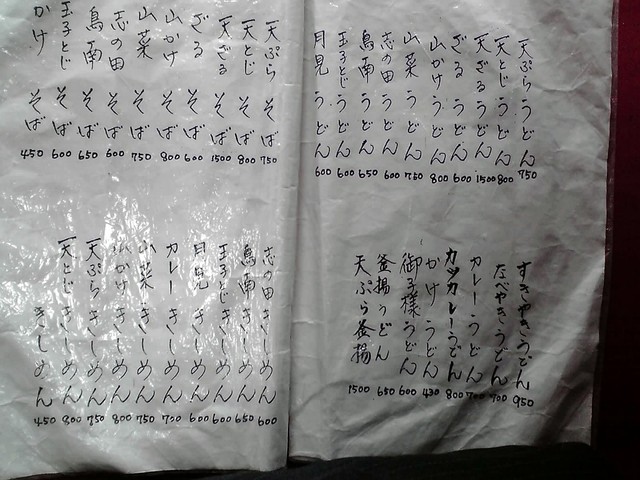 天ぷらうどん 750
天とじうどん 800
天ざるうどん 1500
ざるうどん 600
山かけうどん 800
山菜うどん 750
志の田うどん 600
鳥南うどん 650
玉子とじうどん 600
月見うどん 600
すきやきうどん 950
なべやきうどん 700
カレーうどん 700
カツカレーうどん 800
かけうどん 430
御子様うどん 600
釜揚うどん 650
天ぷら釜揚 1500
天ぷらそば 750
天とじそば 800
天ざるそば 1500
ざるそば 600
山かけそば 800
山菜そば 750
志の田そば 600
鳥南そば 650
玉子とじそば 600
かけそば 450
志の田きしめん 600
鳥南きしめん 650
玉子とじきしめん 600
月見きしめん 600
カレーきしめん 700
山菜きしめん 750
山かけきしめん 800
天ぷらきしめん 750
天とじきしめん 800
きしめん 450